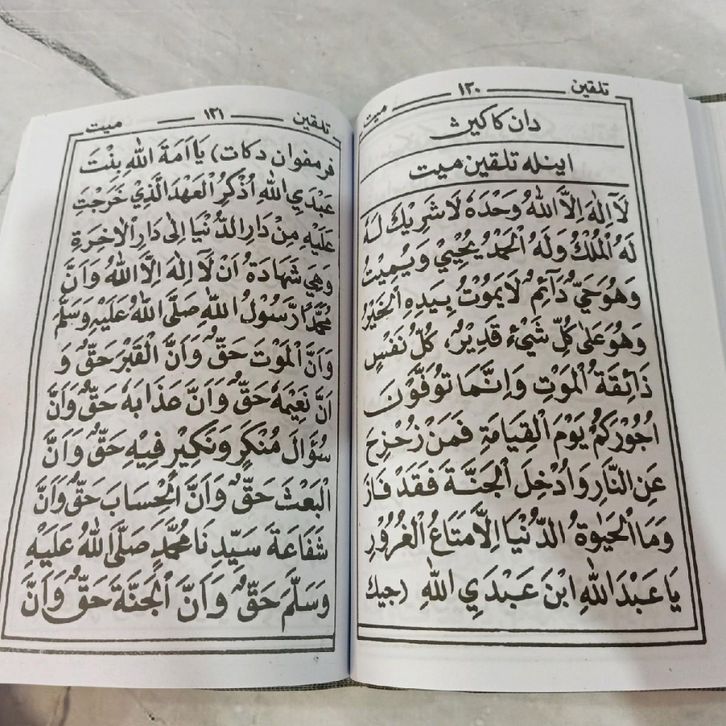 تلقين — ١٢٠ — ميت
دان كاكيرث
اينله تلقين ميت
لَآ اِلٰهَ اِلَّا اللهُ وَحْدَهُ لَا شَرِيْكَ لَهُ
لَهُ الْمُلْكُ وَلَهُ الْحَمْدُ يُحْيِيْ وَيُمِيْتُ
وَهُوَحَيٌّ دَآئِمٌ لَايَمُوْتُ بِيَدِهِ الْخَيْرُ
وَهُوَعَلٰى كُلِّ شَيْءٍ قَدِيْرٌ، كُلُّ نَفْسٍ
ذَآئِقَةُ الْمَوْتِ وَاِنَّمَا تُوَفَّوْنَ
اُجُوْرَكُمْ يَوْمَ الْقِيَامَةِ فَمَنْ زُحْزِحَ
عَنِ النَّارِ وَاُدْخِلَ الْجَنَّةَ فَقَدْ فَازَ
وَمَا الْحَيٰوةُ الدُّنْيَا اِلَّا مَتَاعُ الْغُرُوْرِ
يَاعَبْدَ اللهِ ابْنَ عَبْدَيِ اللهِ (جيك
تلقين — ١٢١ — ميت
فرمفوان دكات) يَا اَمَةَ اللهِ بِنْتَ
عَبْدَيِ اللهِ اُذْكُرِ الْعَهْدَ الَّذِيْ خَرَجْتِ
عَلَيْهِ مِنْ دَارِ الدُّنْيَا اِلٰى دَارِ الْاٰخِرَةِ
وَهِيَ شَهَادَةُ اَنْ لَآ اِلٰهَ اِلَّا اللهُ وَاَنَّ
مُحَمَّدًا رَّسُوْلُ اللهِ صَلَّى اللهُ عَلَيْهِ وَسَلَّمَ
وَاَنَّ الْمَوْتَ حَقٌّ وَاَنَّ الْقَبْرَ حَقٌّ وَ
اَنَّ نَعِيْمَهُ حَقٌّ وَاَنَّ عَذَابَهُ حَقٌّ وَاَنَّ
سُؤَالَ مُنْكَرٍ وَنَكِيْرٍ فِيْهِ حَقٌّ وَاَنَّ
الْبَعْثَ حَقٌّ وَاَنَّ الْحِسَابَ حَقٌّ وَاَنَّ
شَفَاعَةَ سَيِّدِنَا مُحَمَّدٍ صَلَّى اللهُ عَلَيْهِ
وَسَلَّمَ حَقٌّ وَاَنَّ الْجَنَّةَ حَقٌّ وَاَنَّ